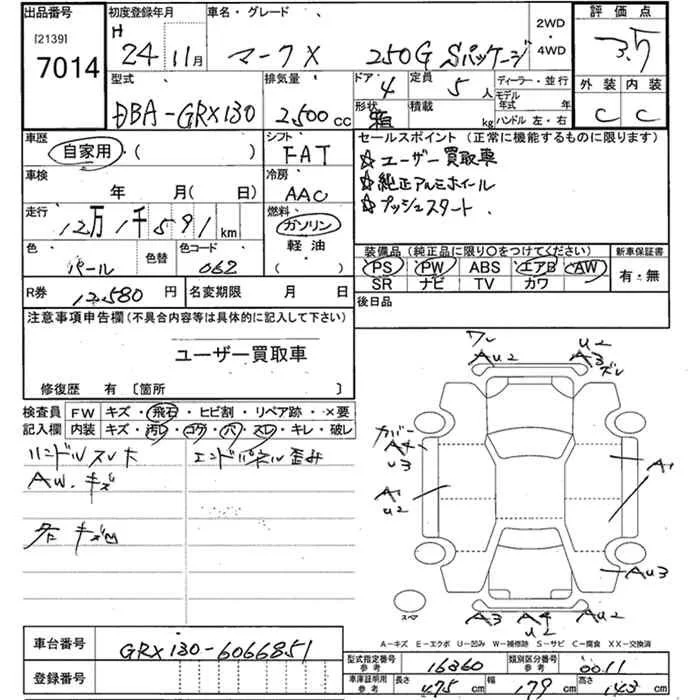 出品番号 初度登録年月 車名・グレード 2WD 評価点
[2139] H
7014 24 11月 マークX 250G Sパッケージ ・ 4WD 3.5
型式 排気量 ドア・ 定員 ディーラー・並行 外装 内装
DBA-GRX130 2,500 cc 4 5人 モデル 年式 年 C C
形状 箱 積載 kg ハンドル 左・右
車歴 シフト セールスポイント (正常に機能するものに限ります)
自家用・( ) FAT ☆ユーザー買取車
車検 冷房 ☆純正アルミホイール
年 月( 日) AAC ☆プッシュスタート
走行 燃料
12万1千591km ガソリン
色 色替 色コード 軽油 装備品(純正品に限り○をつけてください) 新車保証書
パール 062 ( ) PS PW ABS エアB AW 有・無
SR ナビ TV カワ
R券 12,580円 名変期限 月 日 後日品
注意事項申告欄(不具合内容等は具体的に記入して下さい)
ユーザー買取車
修復歴 有〔箇所 〕
検査員 FW キズ・飛石・ヒビ割・リペア跡・×要
記入欄 内装 キズ・汚れ・コゲ・穴・スレ・キレ・破レ
ハンドルスレ大 エンドパネル歪み
AW.キズ
各キズ凹
ワレ U2
AU2 A3 ズレ
カバー
A4
U3 A1
A1
U2
AU3
スペア A3 A4 AU2
U2
A-キズ E-エクボ U-凹み W-補修跡 S-サビ C-腐食 XX-交換済
車台番号 GRX130-6066851
登録番号
型式指定番号 参考 16360 類別区分番号 参考 0011
車庫証明用 参考 長さ 475cm 幅 179cm 高さ 143cm